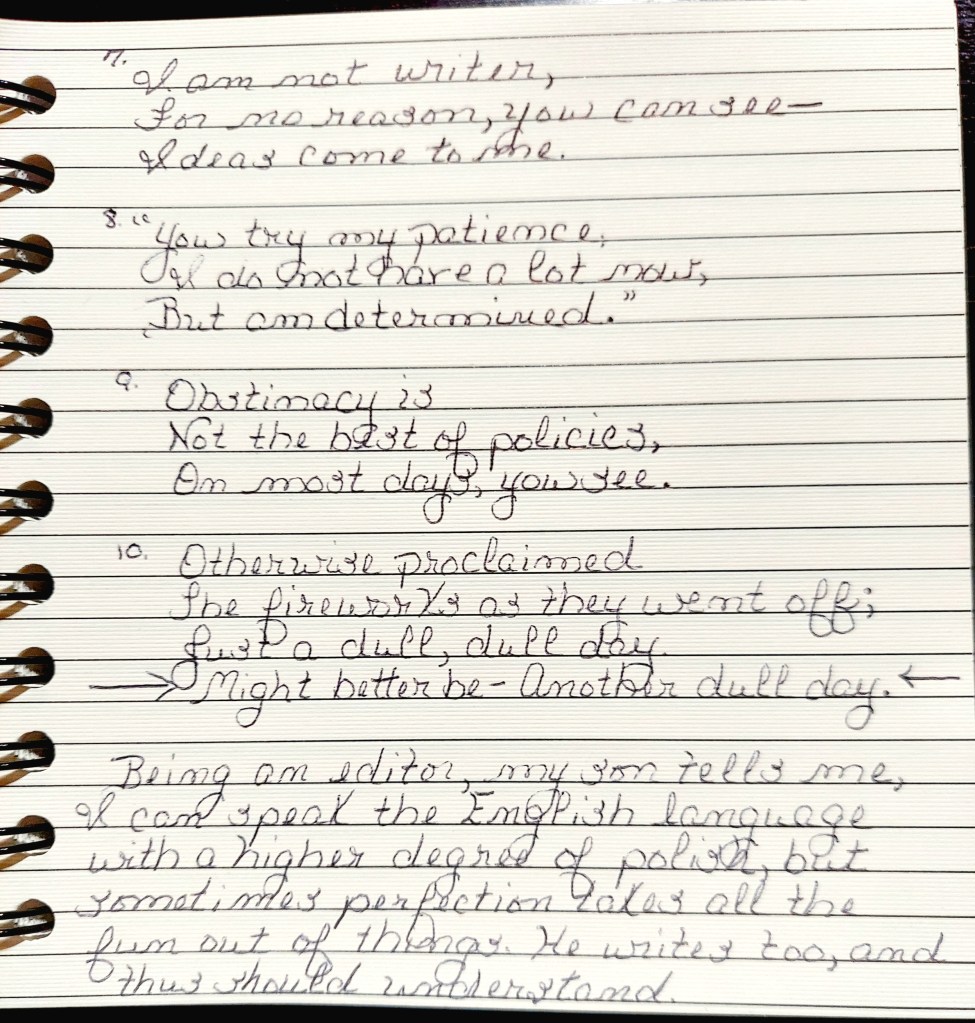 7. I am not writer,
For no reason, you can see—
Ideas come to me.
8. "You try my patience,
I do not have a lot now,
But am determined."
9. Obstinacy is
Not the best of policies,
On most days, you see.
10. Otherwise proclaimed
The fireworks as they went off;
Just a dull, dull day.
→ Might better be - Another dull day. ←
Being an editor, my son tells me,
I can speak the English language
with a higher degree of polish, but
sometimes perfection takes all the
fun out of things. He writes too, and
thus should understand.